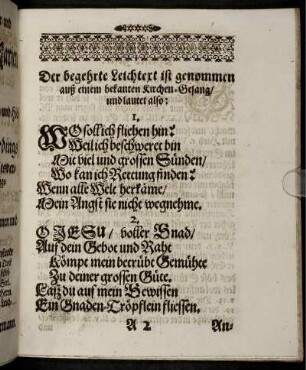 Der begehrte Leichtext ist genommen
auß einem bekanten Kirchen-Gesang/
und lautet also:
1.
WO soll ich fliehen hin?
Weil ich beschweret bin
Mit viel und grossen Sünden/
Wo kan ich Rettung finden?
Wenn alle Welt herkäme/
Mein Angst sie nicht wegnehme.
2.
O JESU/ voller Gnad/
Auf dein Gebot und Raht
Kömpt mein betrübt Gemühte
Zu deiner grossen Güte.
Laß du auf mein Gewissen
Ein Gnaden-Tröpflein fliessen.
A 2 An-